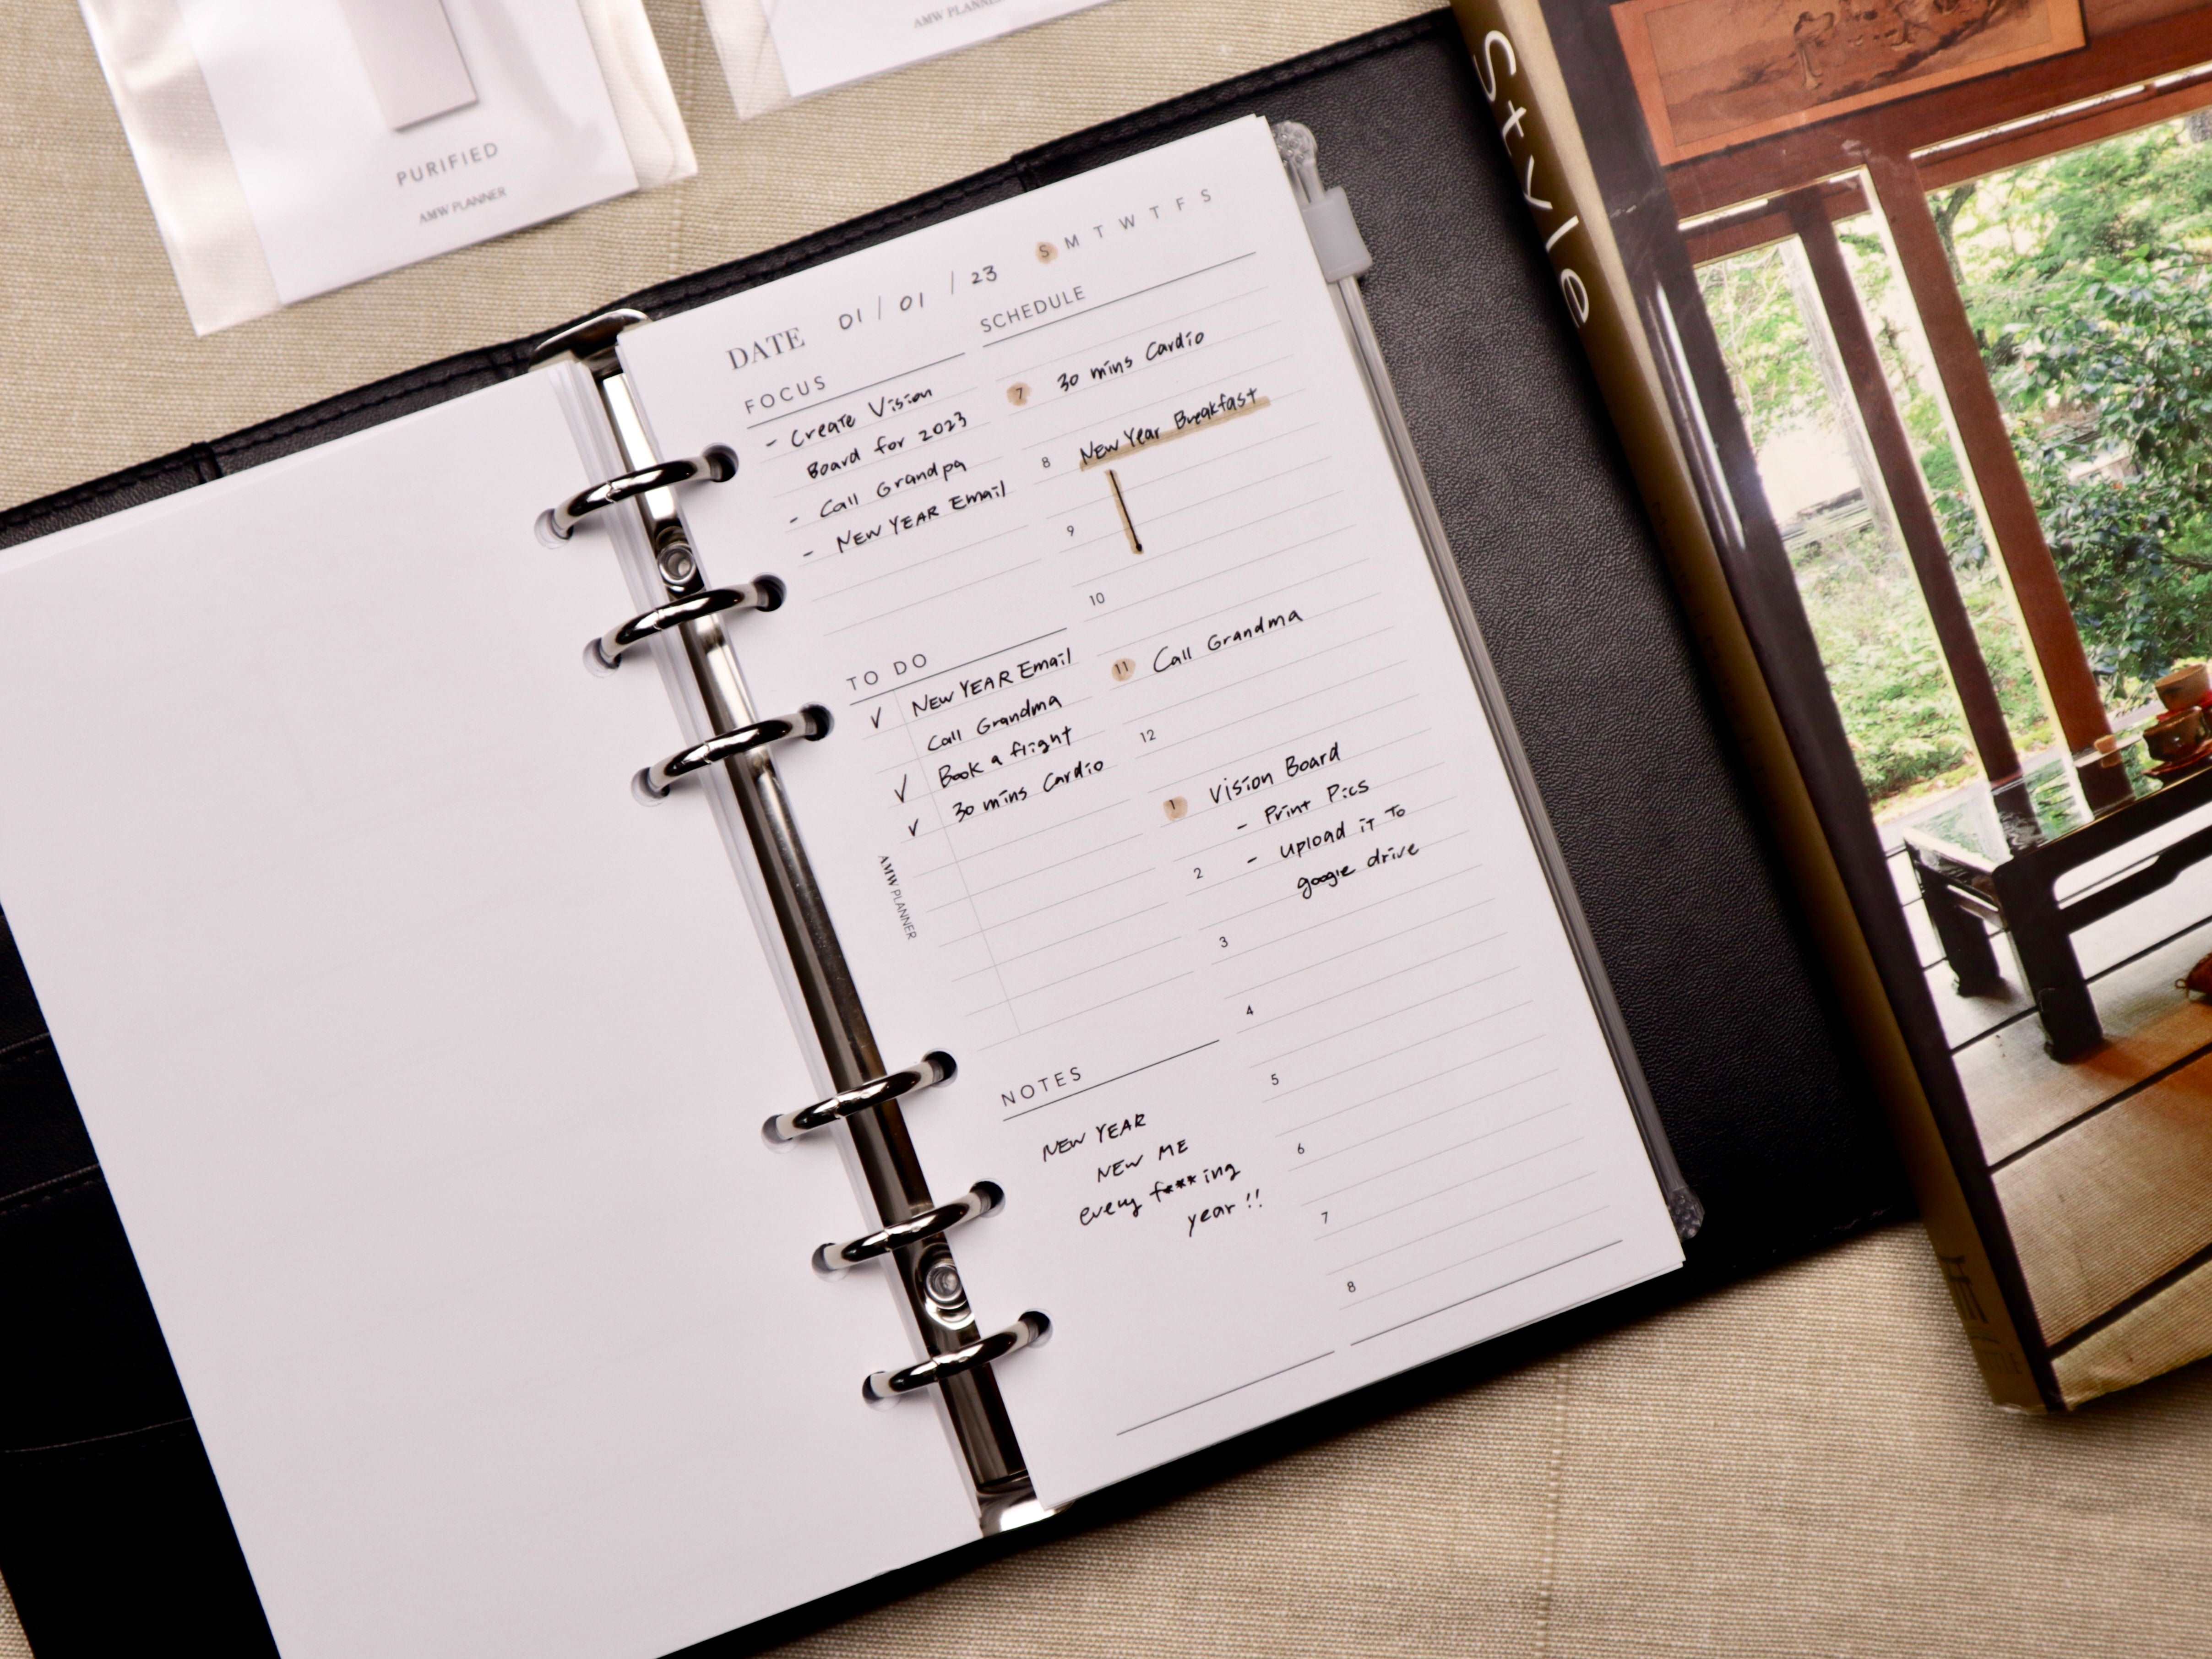 PURIFIED
AMW PLANNER
AMW PLANNER
Style
DATE 01 / 01 / 23 S M T W T F S
FOCUS
- Create Vision
Board for 2023
- Call Grandpa
- NEW YEAR Email
TO DO
✓ NEW YEAR Email
Call Grandma
✓ Book a flight
✓ 30 mins Cardio
AMW PLANNER
NOTES
NEW YEAR
NEW ME
every f***ing
year !!
SCHEDULE
7 30 mins Cardio
8 New Year Breakfast
9
10
11 Call Grandma
12
1 Vision Board
- Print Pics
2 - upload it to
google drive
3
4
5
6
7
8